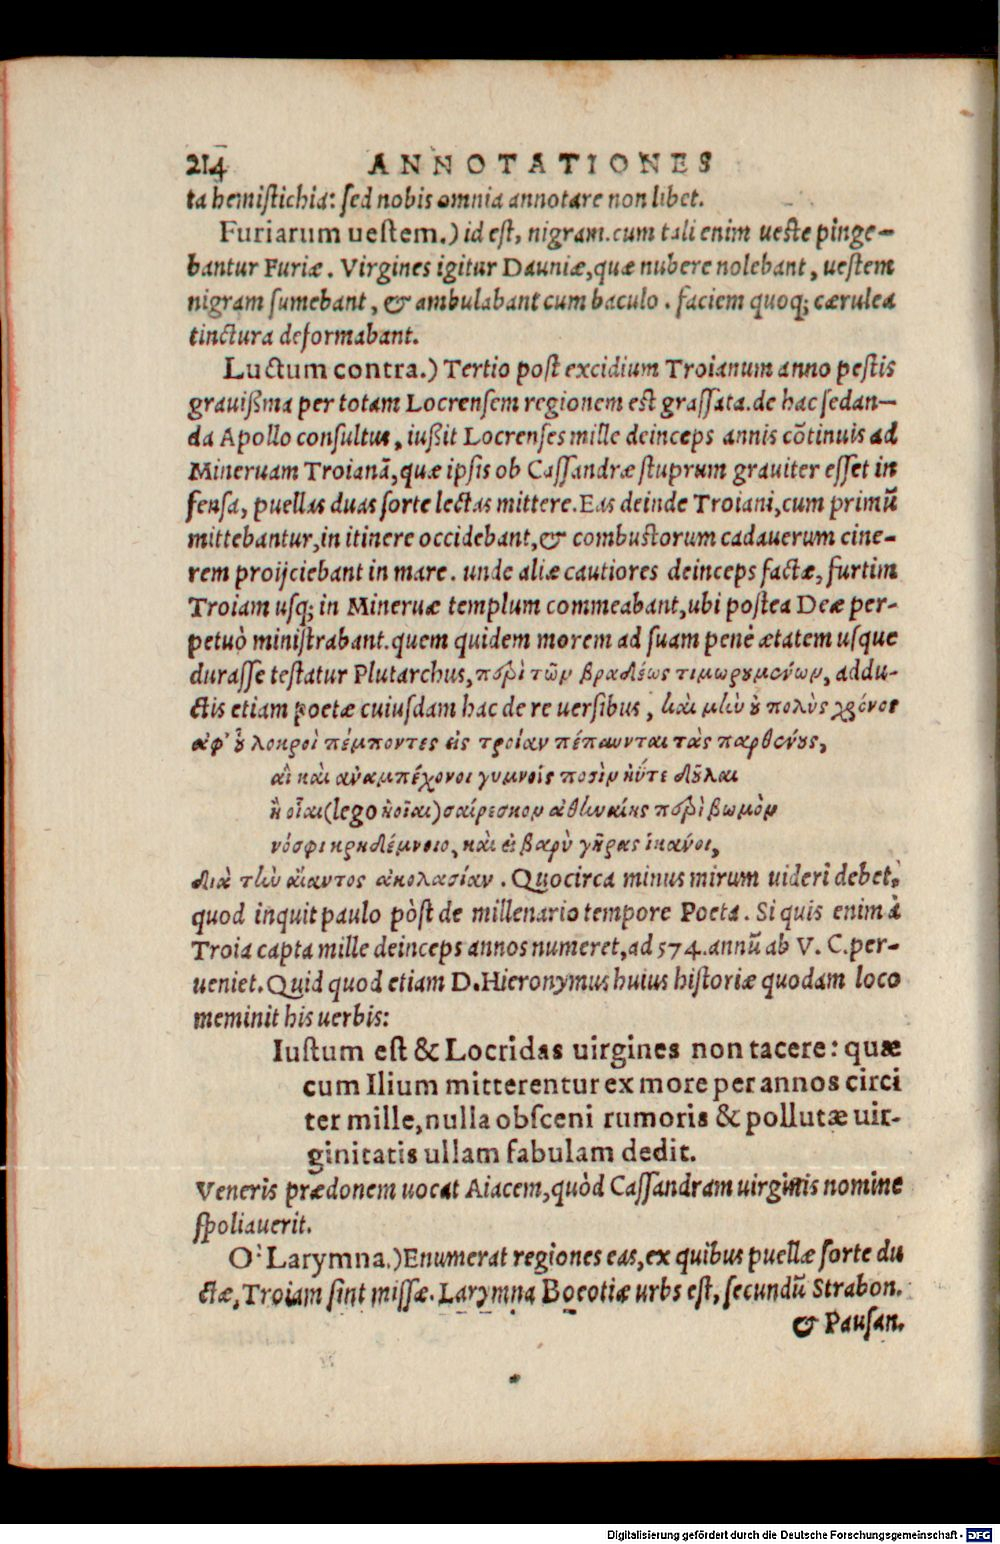 214 ANNOTATIONES
ta hemistichia: sed nobis omnia annotare non libet.
Furiarum uestem.) id est, nigram. cum tali enim ueste pinge-
bantur Furiæ. Virgines igitur Dauniæ, quæ nubere nolebant, uestem
nigram sumebant, & ambulabant cum baculo. faciem quoq; cærulea
tinctura deformabant.
Luctum contra.) Tertio post excidium Troianum anno pestis
grauißma per totam Locrensem regionem est grassata. de hac sedan-
da Apollo consultus, iußit Locrenses mille deinceps annis cõtinuis ad
Mineruam Troianã, quæ ipsis ob Cassandræ stuprum grauiter esset in
fensa, puellas duas sorte lectas mittere. Eas deinde Troiani, cum primũ
mittebantur, in itinere occidebant, & combustorum cadauerum cine-
rem proijciebant in mare. unde aliæ cautiores deinceps factæ, furtim
Troiam usq; in Mineruæ templum commeabant, ubi postea Deæ per-
petuò ministrabant. quem quidem morem ad suam penè ætatem usque
durasse testatur Plutarchus, περὶ τῶν βραδέως τιμωρουμένων, addu-
ctis etiam poetæ cuiusdam hac de re uersibus, καὶ μὴν οὐ πολὺς χρόνος
ἀφ' οὗ λοκροὶ πέμποντες εἰς τροίαν πέπαυνται τὰς παρθένους,
αἳ καὶ ἀναμπέχονοι γυμνοῖς ποσὶν ἠΰτε δοῦλαι
ἢ οἷαι (lego ἠοῖαι) σαίρεσκον ἀθηναίης περὶ βωμὸν
νόσφι κρηδέμνοιο, καὶ εἰ βαρὺ γῆρας ἱκανοι,
διὰ τὴν αἴαντος ἀκολασίαν. Quocirca minus mirum uideri debet,
quod inquit paulo pòst de millenario tempore Poeta. Si quis enim à
Troia capta mille deinceps annos numeret, ad 574. annũ ab V. C. per-
ueniet. Quid quod etiam D. Hieronymus huius historiæ quodam loco
meminit his uerbis:
Iustum est & Locridas uirgines non tacere: quæ
cum Ilium mitterentur ex more per annos circi
ter mille, nulla obsceni rumoris & pollutæ uir-
ginitatis ullam fabulam dedit.
Veneris prædonem uocat Aiacem, quòd Cassandram uirginis nomine
spoliauerit.
O' Larymna.) Enumerat regiones eas, ex quibus puellæ sorte du
ctæ, Troiam sint missæ. Larymna Boeotiæ urbs est, secundũ Strabon.
& Pausan.
Digitalisierung gefördert durch die Deutsche Forschungsgemeinschaft - DFG